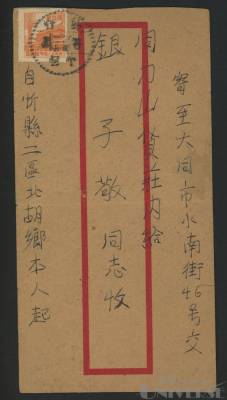 寄至大同市水南街46号交
同力山貨莊内給
銀子敬同志收
自忻縣二區北胡鄉本人起